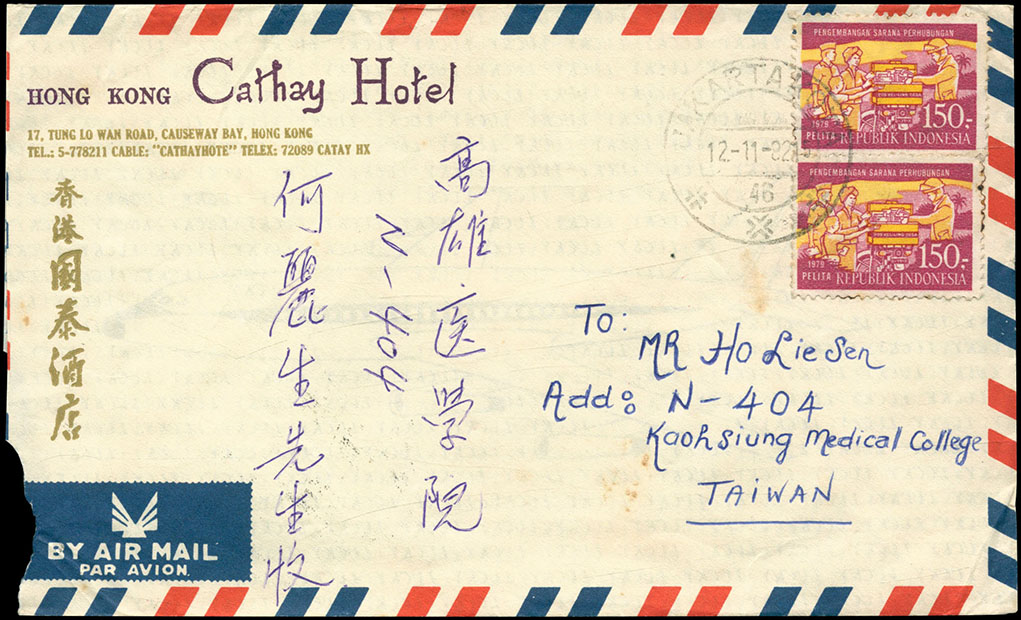 HONG KONG Cathay Hotel
17, TUNG LO WAN ROAD, CAUSEWAY BAY, HONG KONG
TEL.: 5-778211 CABLE: "CATHAYHOTE" TELEX: 72089 CATAY HX
香港國泰酒店
PENGEMBANGAN SARANA PERHUBUNGAN
1979
150,-
PELITA REPUBLIK INDONESIA
PENGEMBANGAN SARANA PERHUBUNGAN
1979
150,-
PELITA REPUBLIK INDONESIA
JAKARTA
12-11-82
46
高雄医学院
N-404
何麗生先生收
To:
MR Ho Lie Sen
Add: N-404
Kaohsiung Medical College
TAIWAN
BY AIR MAIL
PAR AVION